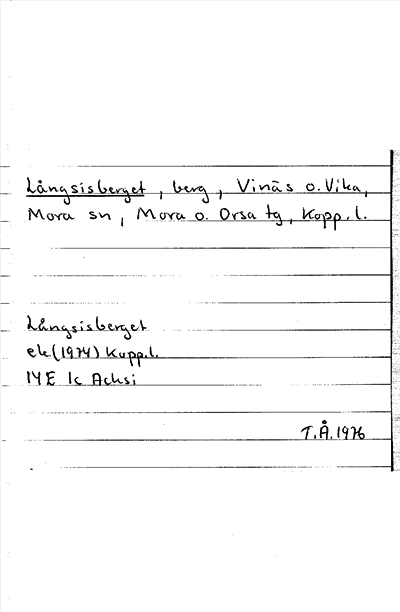 Långsisberget, berg, Vinäs o. Vika,
Mora sn, Mora o. Orsa tg, Kopp. l.
Långsisberget
ek (1974) Kopp. l.
14E 1c Acksi
T.Å. 1976